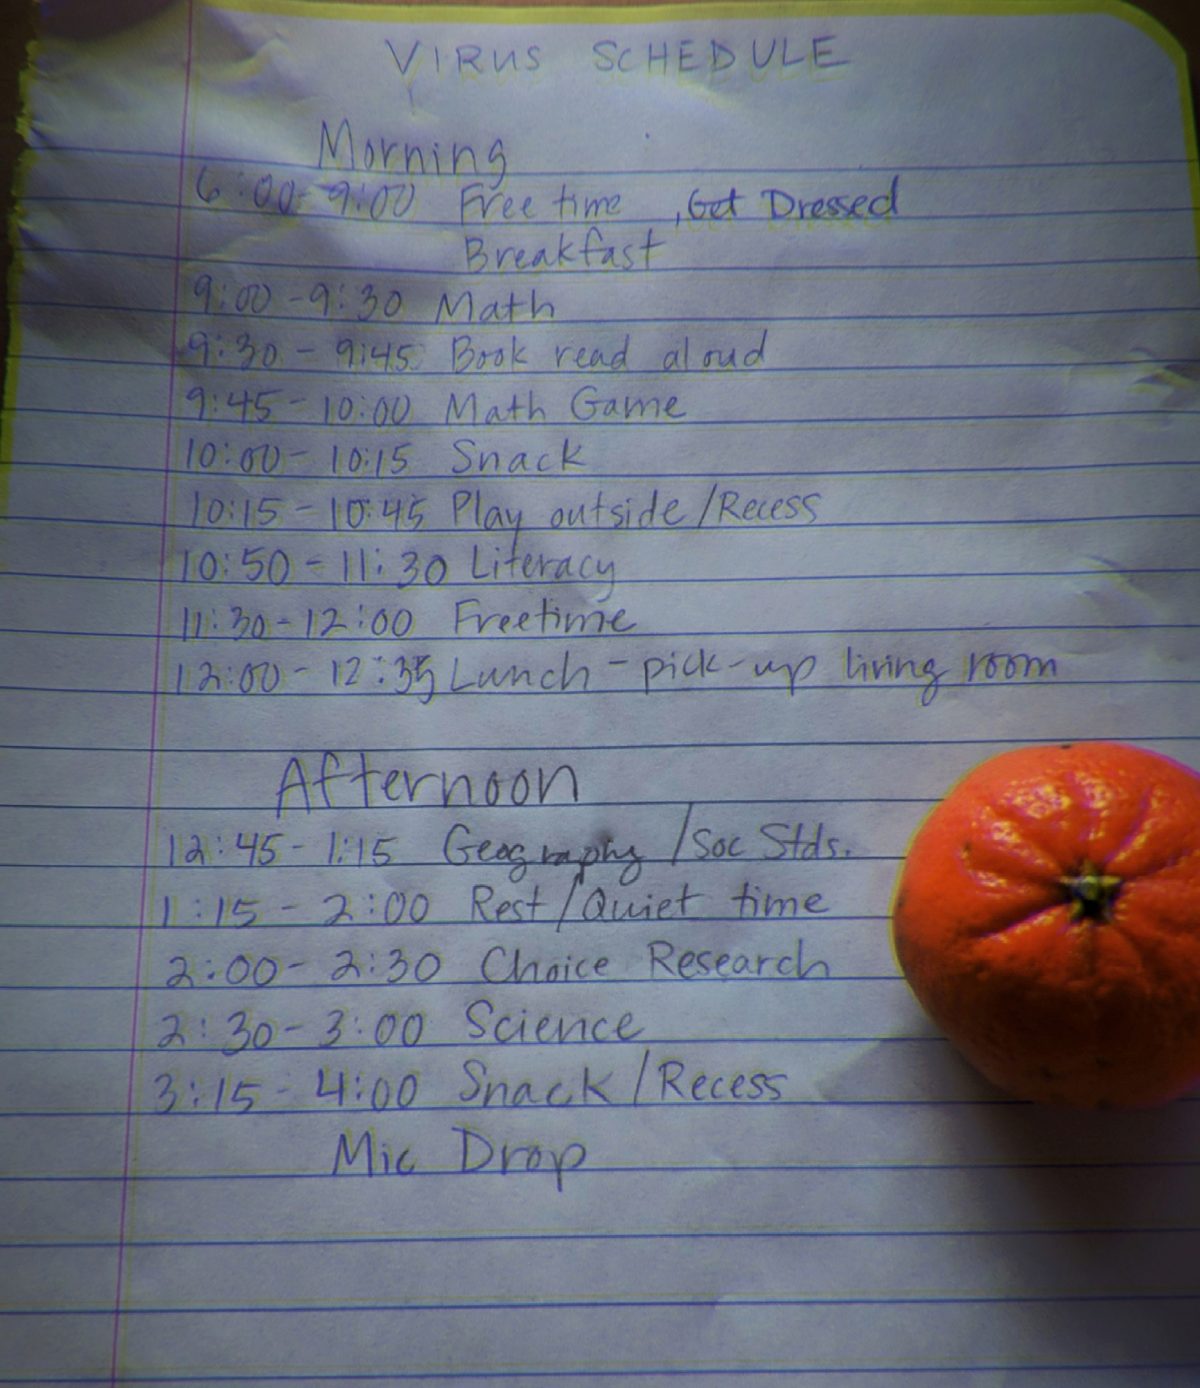 VIRUS SCHEDULE
Morning
6:00-9:00 Free time , Get Dressed
Breakfast
9:00-9:30 Math
9:30-9:45 Book read aloud
9:45-10:00 Math Game
10:00-10:15 Snack
10:15-10:45 Play outside/Recess
10:50-11:30 Literacy
11:30-12:00 Freetime
12:00-12:35 Lunch-pick-up living room
Afternoon
12:45-1:15 Geography/Soc Stds.
1:15-2:00 Rest/Quiet time
2:00-2:30 Choice Research
2:30-3:00 Science
3:15-4:00 Snack/Recess
Mic Drop